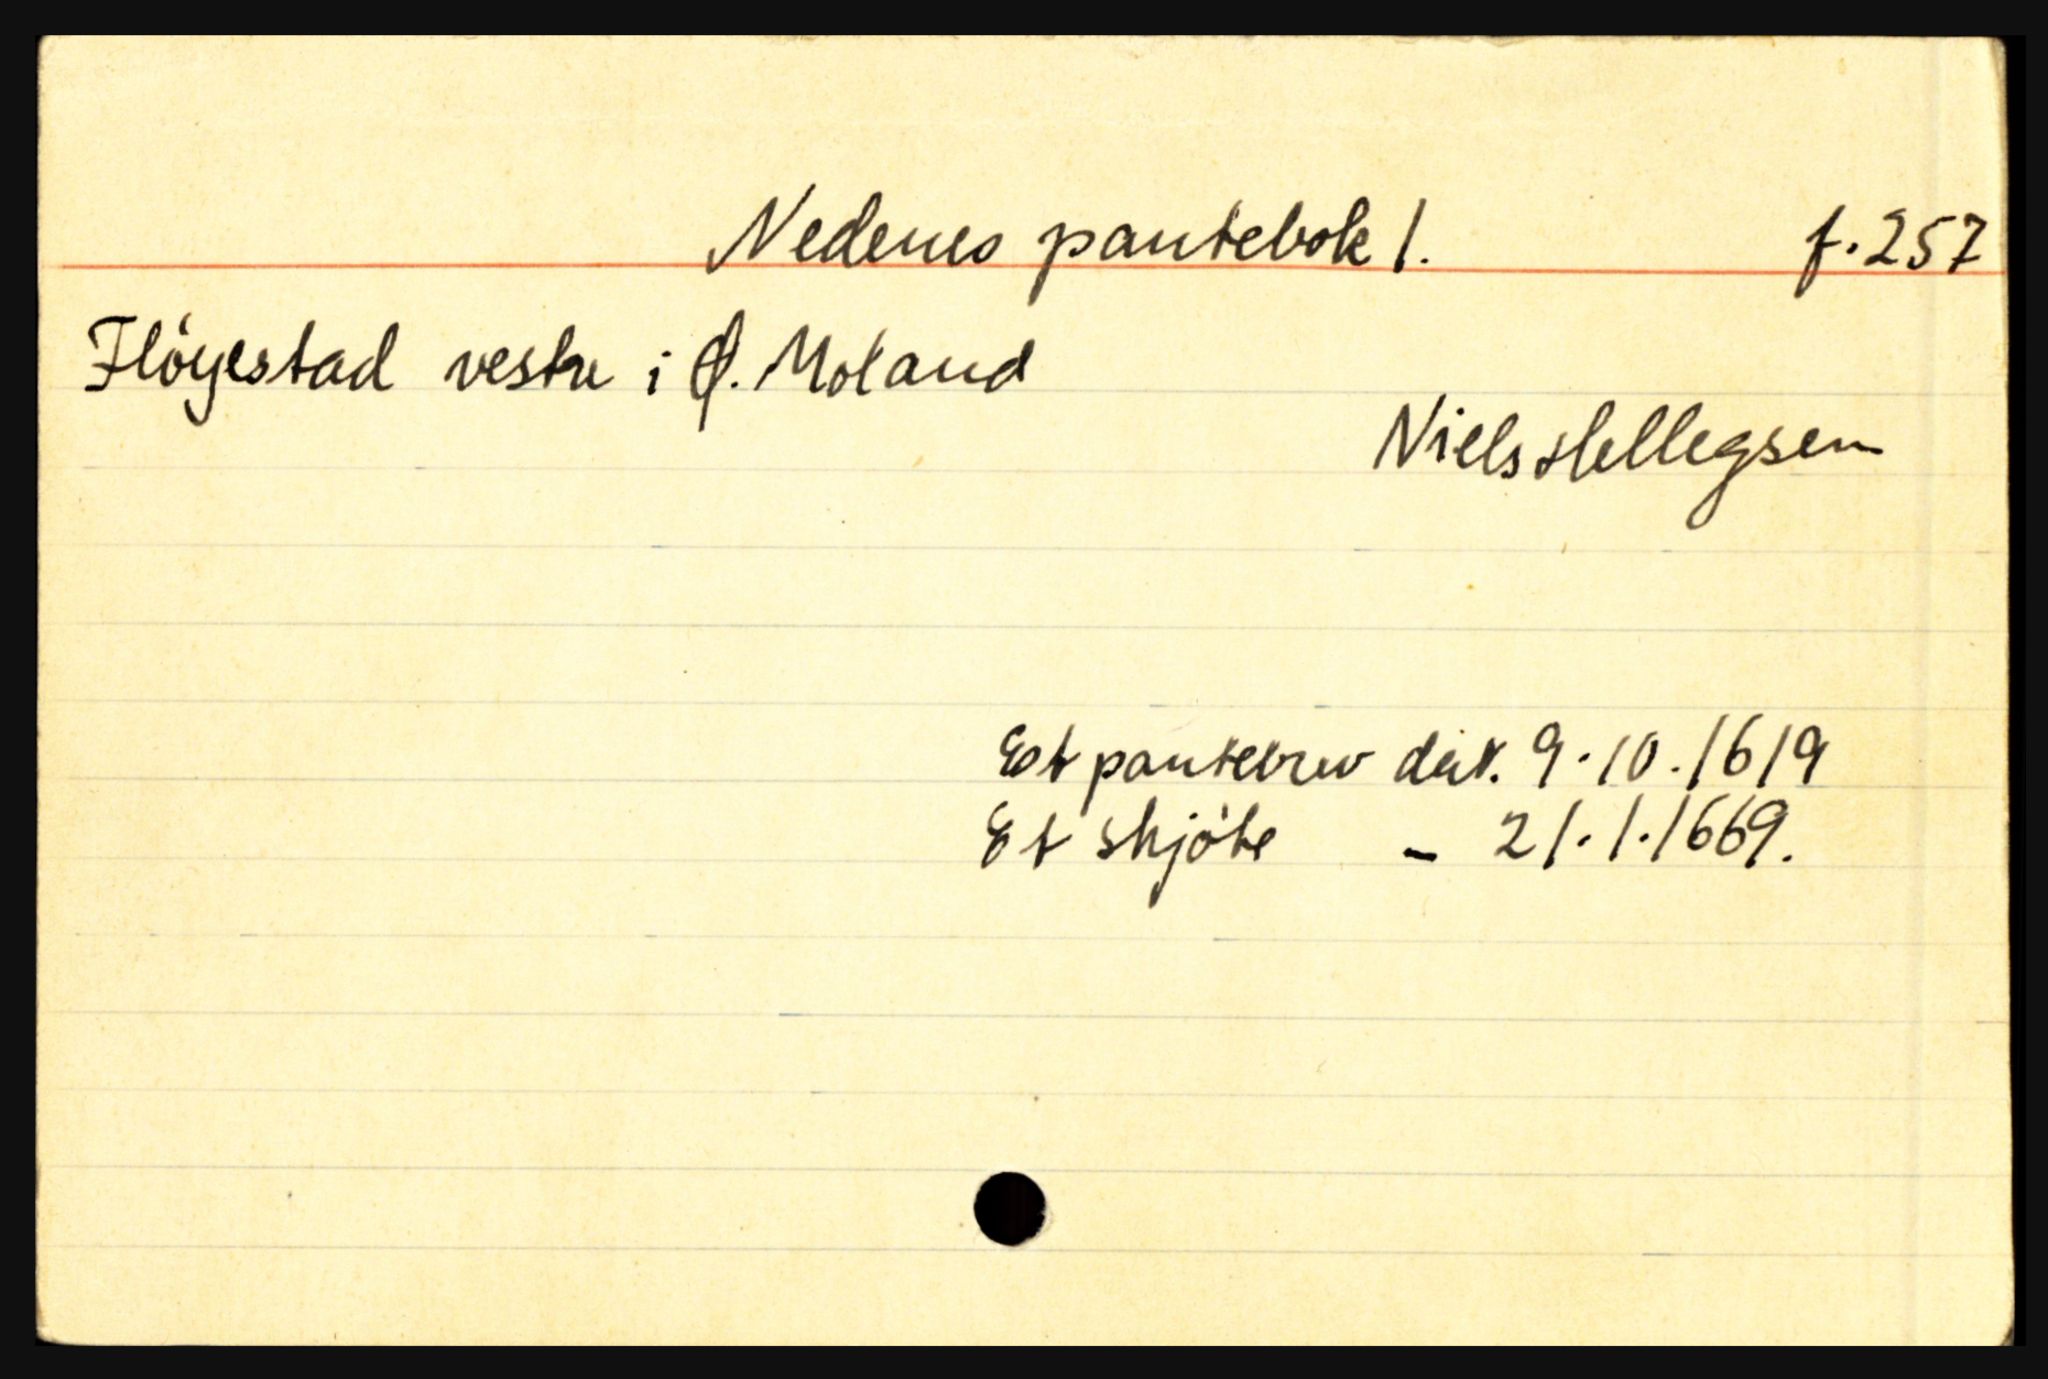 Nedenes pantebok 1. f. 257
Flöyestad vestre i Ø. Moland
Niels Hellegsen
Et pantebrev dat. 9.10.1619
Et skjöte - 21.1.1669.